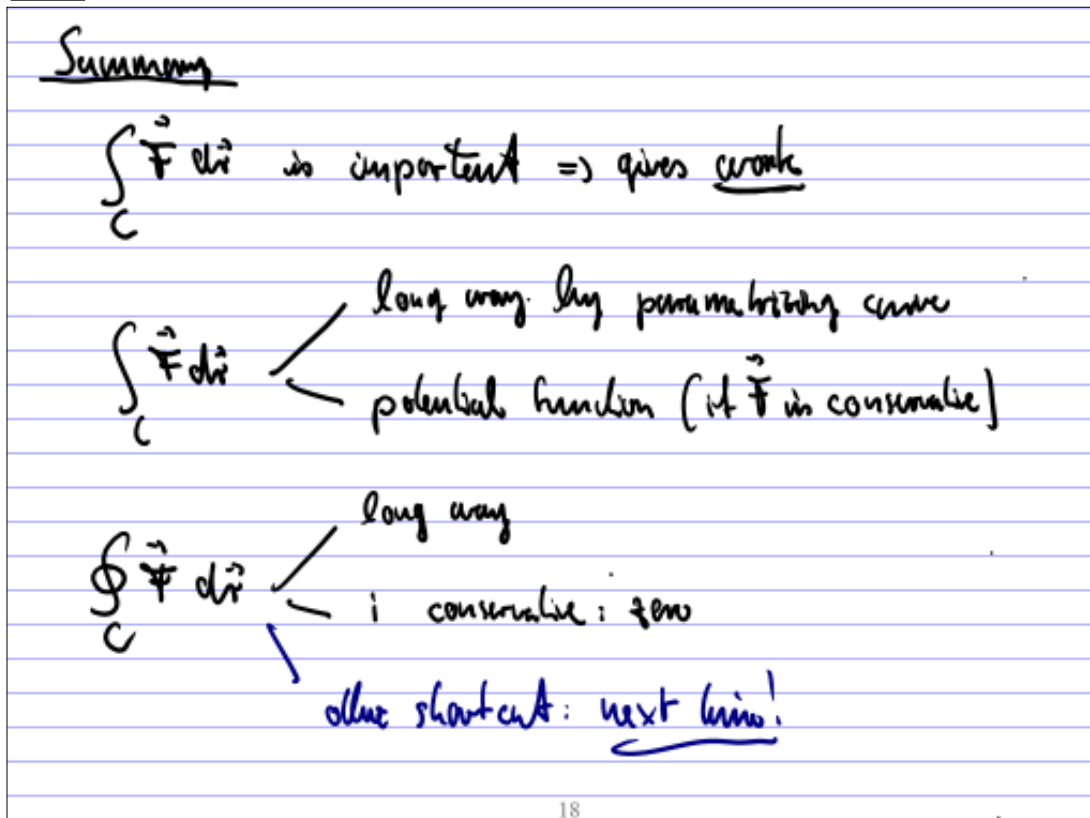 Summary
∫_C F⃗ dr⃗ is important => gives work
long way by parametrizing curve
∫_C F⃗ dr⃗
potential function (if F⃗ is conservative)
long way
∮_C F⃗ dr⃗
i conservative: zero
other shortcut: next time!
18